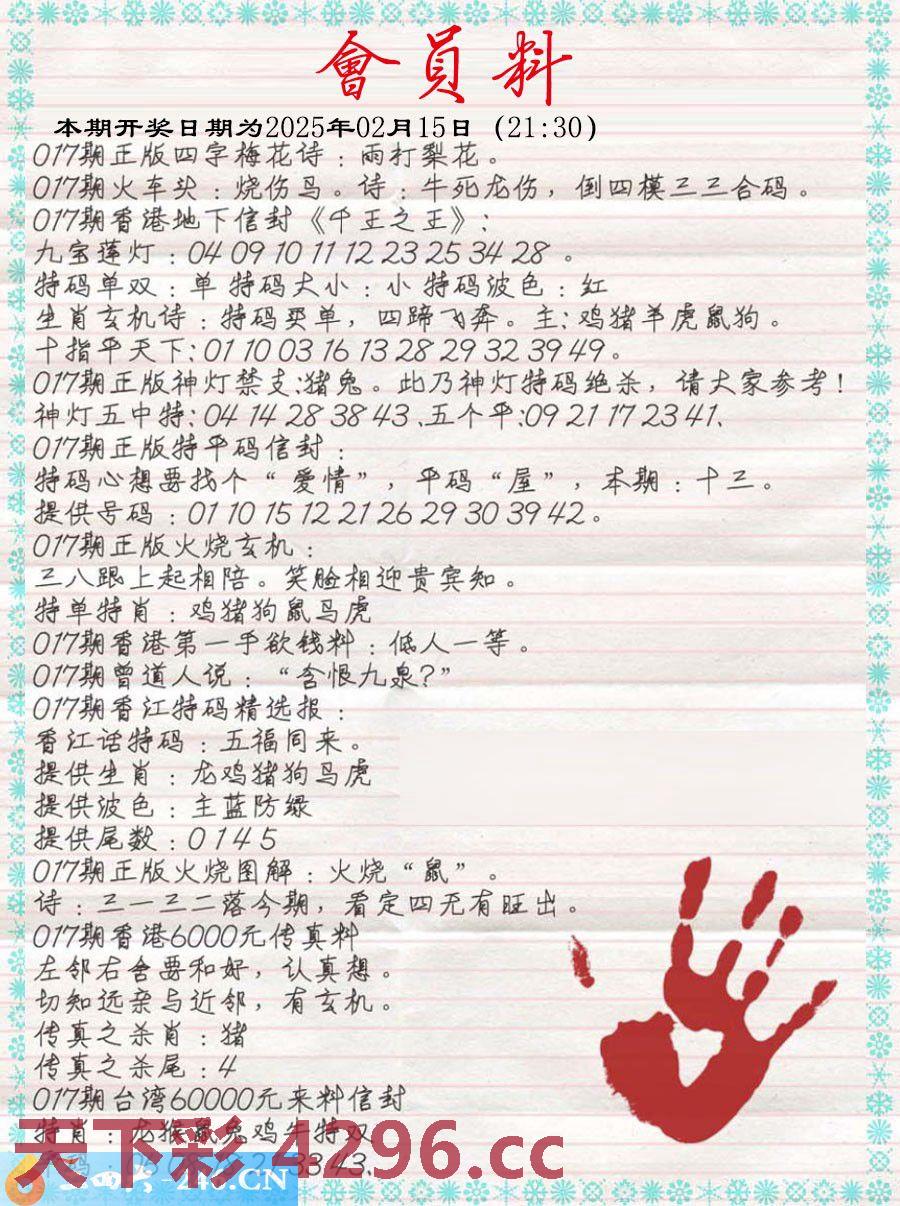 會員料
本期开奖日期为2025年02月15日（21:30）
017期正版四字梅花诗：雨打梨花。
017期火车头：烧伤鸟。诗：牛死龙伤，倒四模三三合码。
017期香港地下信封《千王之王》：
九宝莲灯：04 09 10 11 12 23 25 34 28 。
特码单双：单 特码大小：小 特码波色：红
生肖玄机诗：特码买单，四蹄飞奔。主：鸡猪羊虎鼠狗。
十指平天下：01 10 03 16 13 28 29 32 39 49。
017期正版神灯禁支：猪兔。此乃神灯特码绝杀，请大家参考！
神灯五中特：04 14 28 38 43 、五个平：09 21 17 23 41、
017期正版特平码信封：
特码心想要找个“爱情”，平码“屋”，本期：十三。
提供号码：01 10 15 12 21 26 29 30 39 42。
017期正版火烧玄机：
三八跟上起相陪。笑脸相迎贵宾知。
特单特肖：鸡猪狗鼠马虎
017期香港第一手欲钱料：低人一等。
017期曾道人说：“含恨九泉？”
017期香江特码精选报：
香江话特码：五福同来。
提供生肖：龙鸡猪狗马虎
提供波色：主蓝防绿
提供尾数：0 1 4 5
017期正版火烧图解：火烧“鼠”。
诗：三一三二落今期，看定四无有旺出。
017期香港6000元传真料
左邻右舍要和好，认真想。
切知远亲与近邻，有玄机。
传真之杀肖：猪
传真之杀尾：4
017期台湾60000元来料信封
特肖：龙猴鼠兔鸡牛特双
33 43、
天下彩 4296.cc
-246.CN